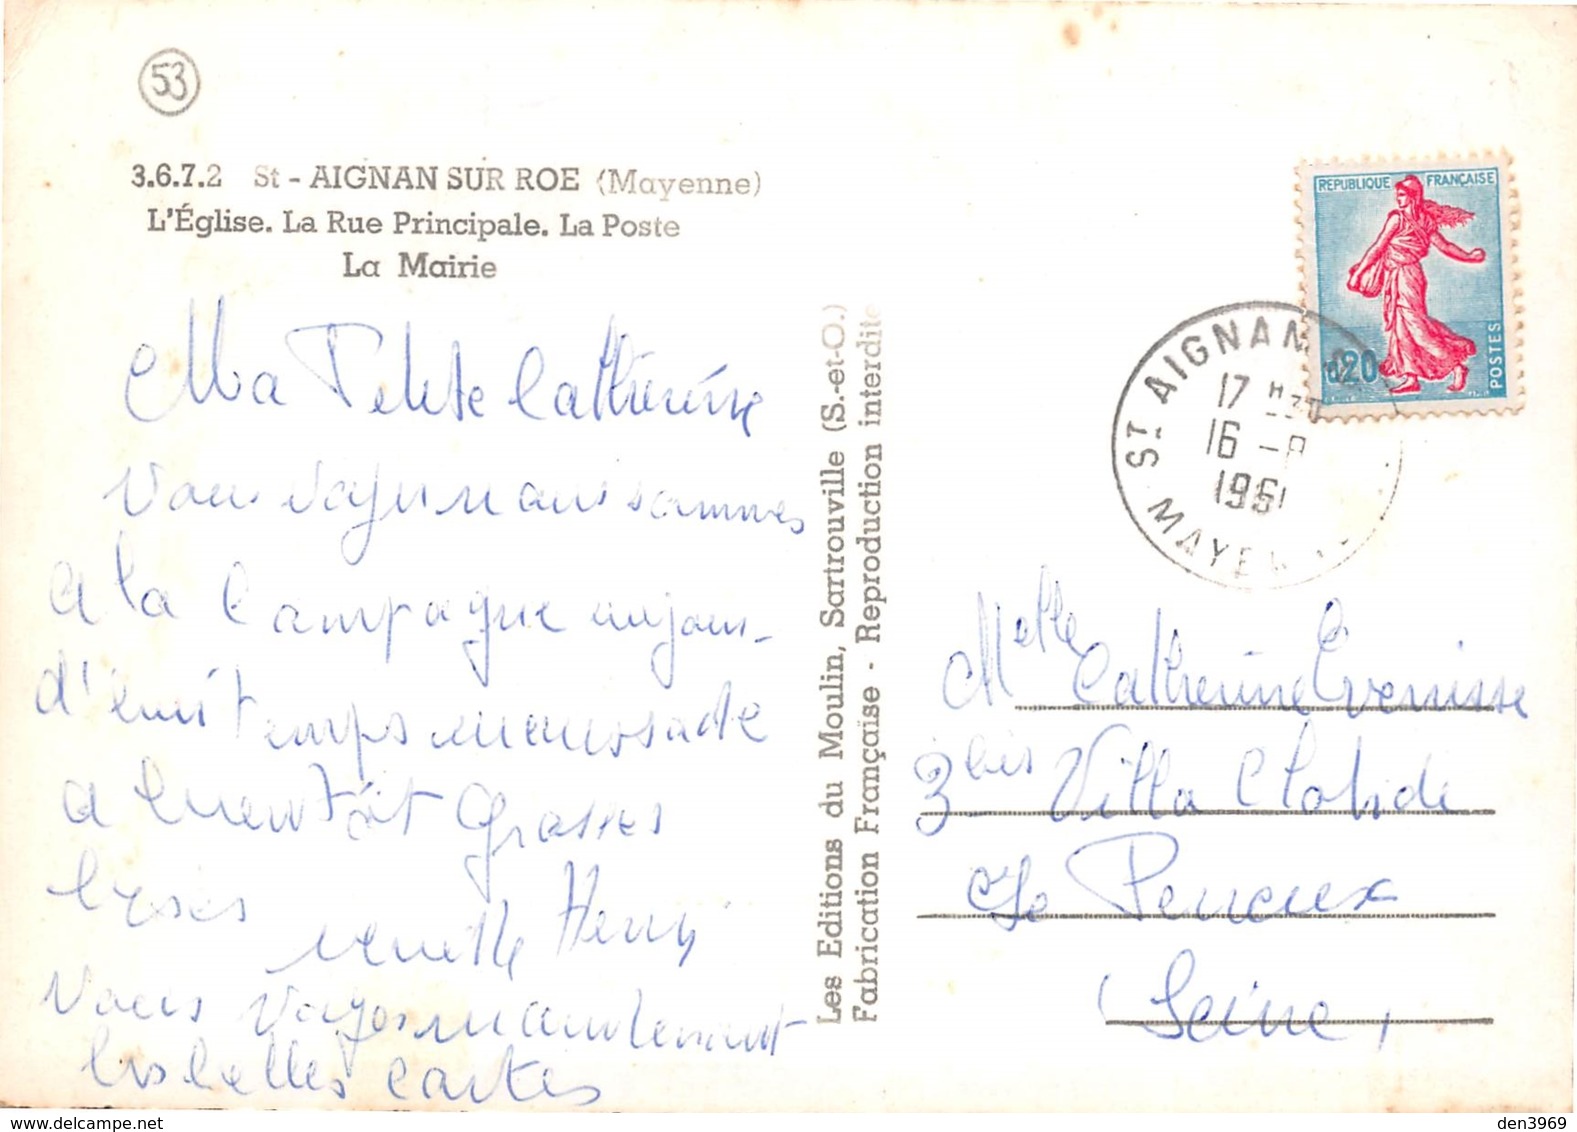 53
3.6.7.2 St - AIGNAN SUR ROE (Mayenne)
L'Église. La Rue Principale. La Poste
La Mairie
Ma Petite Catherine
Vous voyez nous sommes
a la Campagne aujour-
d'huit temps maussade
a bientôt Grosses
bises
Henri
Vous voyez maintenant
les belles cartes
Les Editions du Moulin, Sartrouville (S.-et-O.)
Fabrication Française - Reproduction interdite
REPUBLIQUE FRANÇAISE
0,20
POSTES
ST AIGNAN
17 H
16 - 8
1961
MAYENNE
Melle Catherine
3 bis Villa Clotilde
Le Perreux
(Seine)
den3969